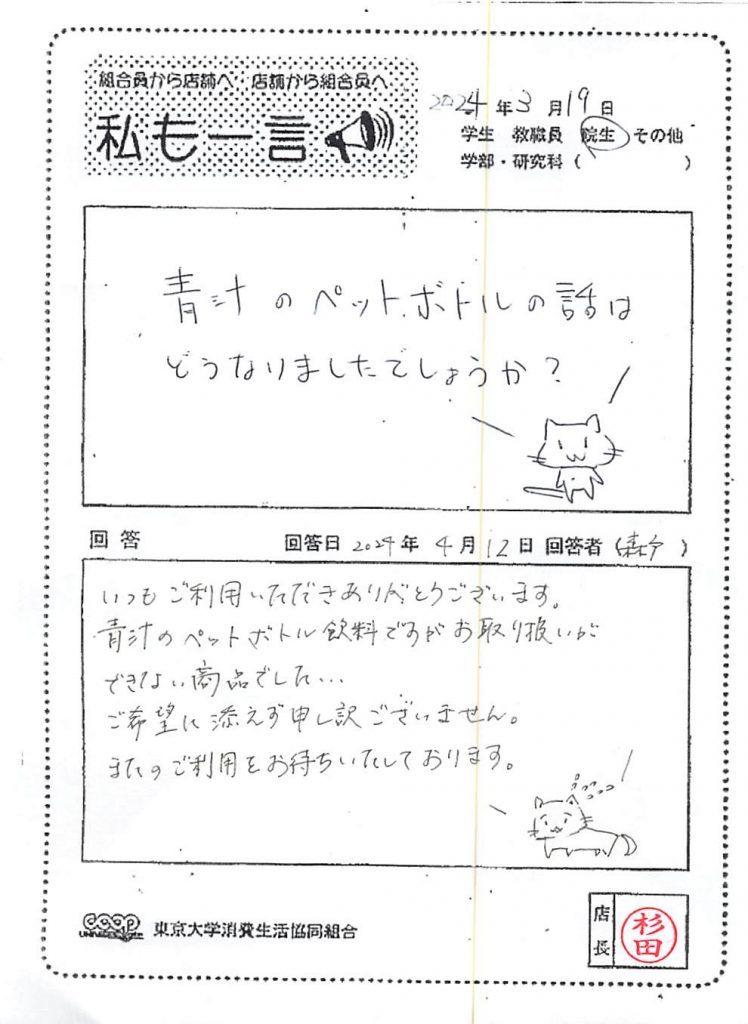 組合員から店舗へ 店舗から組合員へ
私も一言
2024年3月19日
学生 教職員 院生 その他
学部・研究科( )
青汁のペットボトルの話は
どうなりましたでしょうか?
回答 回答日 2024年 4月12日 回答者( )
いつもご利用いただきありがとうございます。
青汁のペットボトル飲料ですがお取り扱いが
できない商品でした...
ご希望に添えず申し訳ございません。
またのご利用をお待ちいたしております。
coop
東京大学消費生活協同組合
店長
杉田